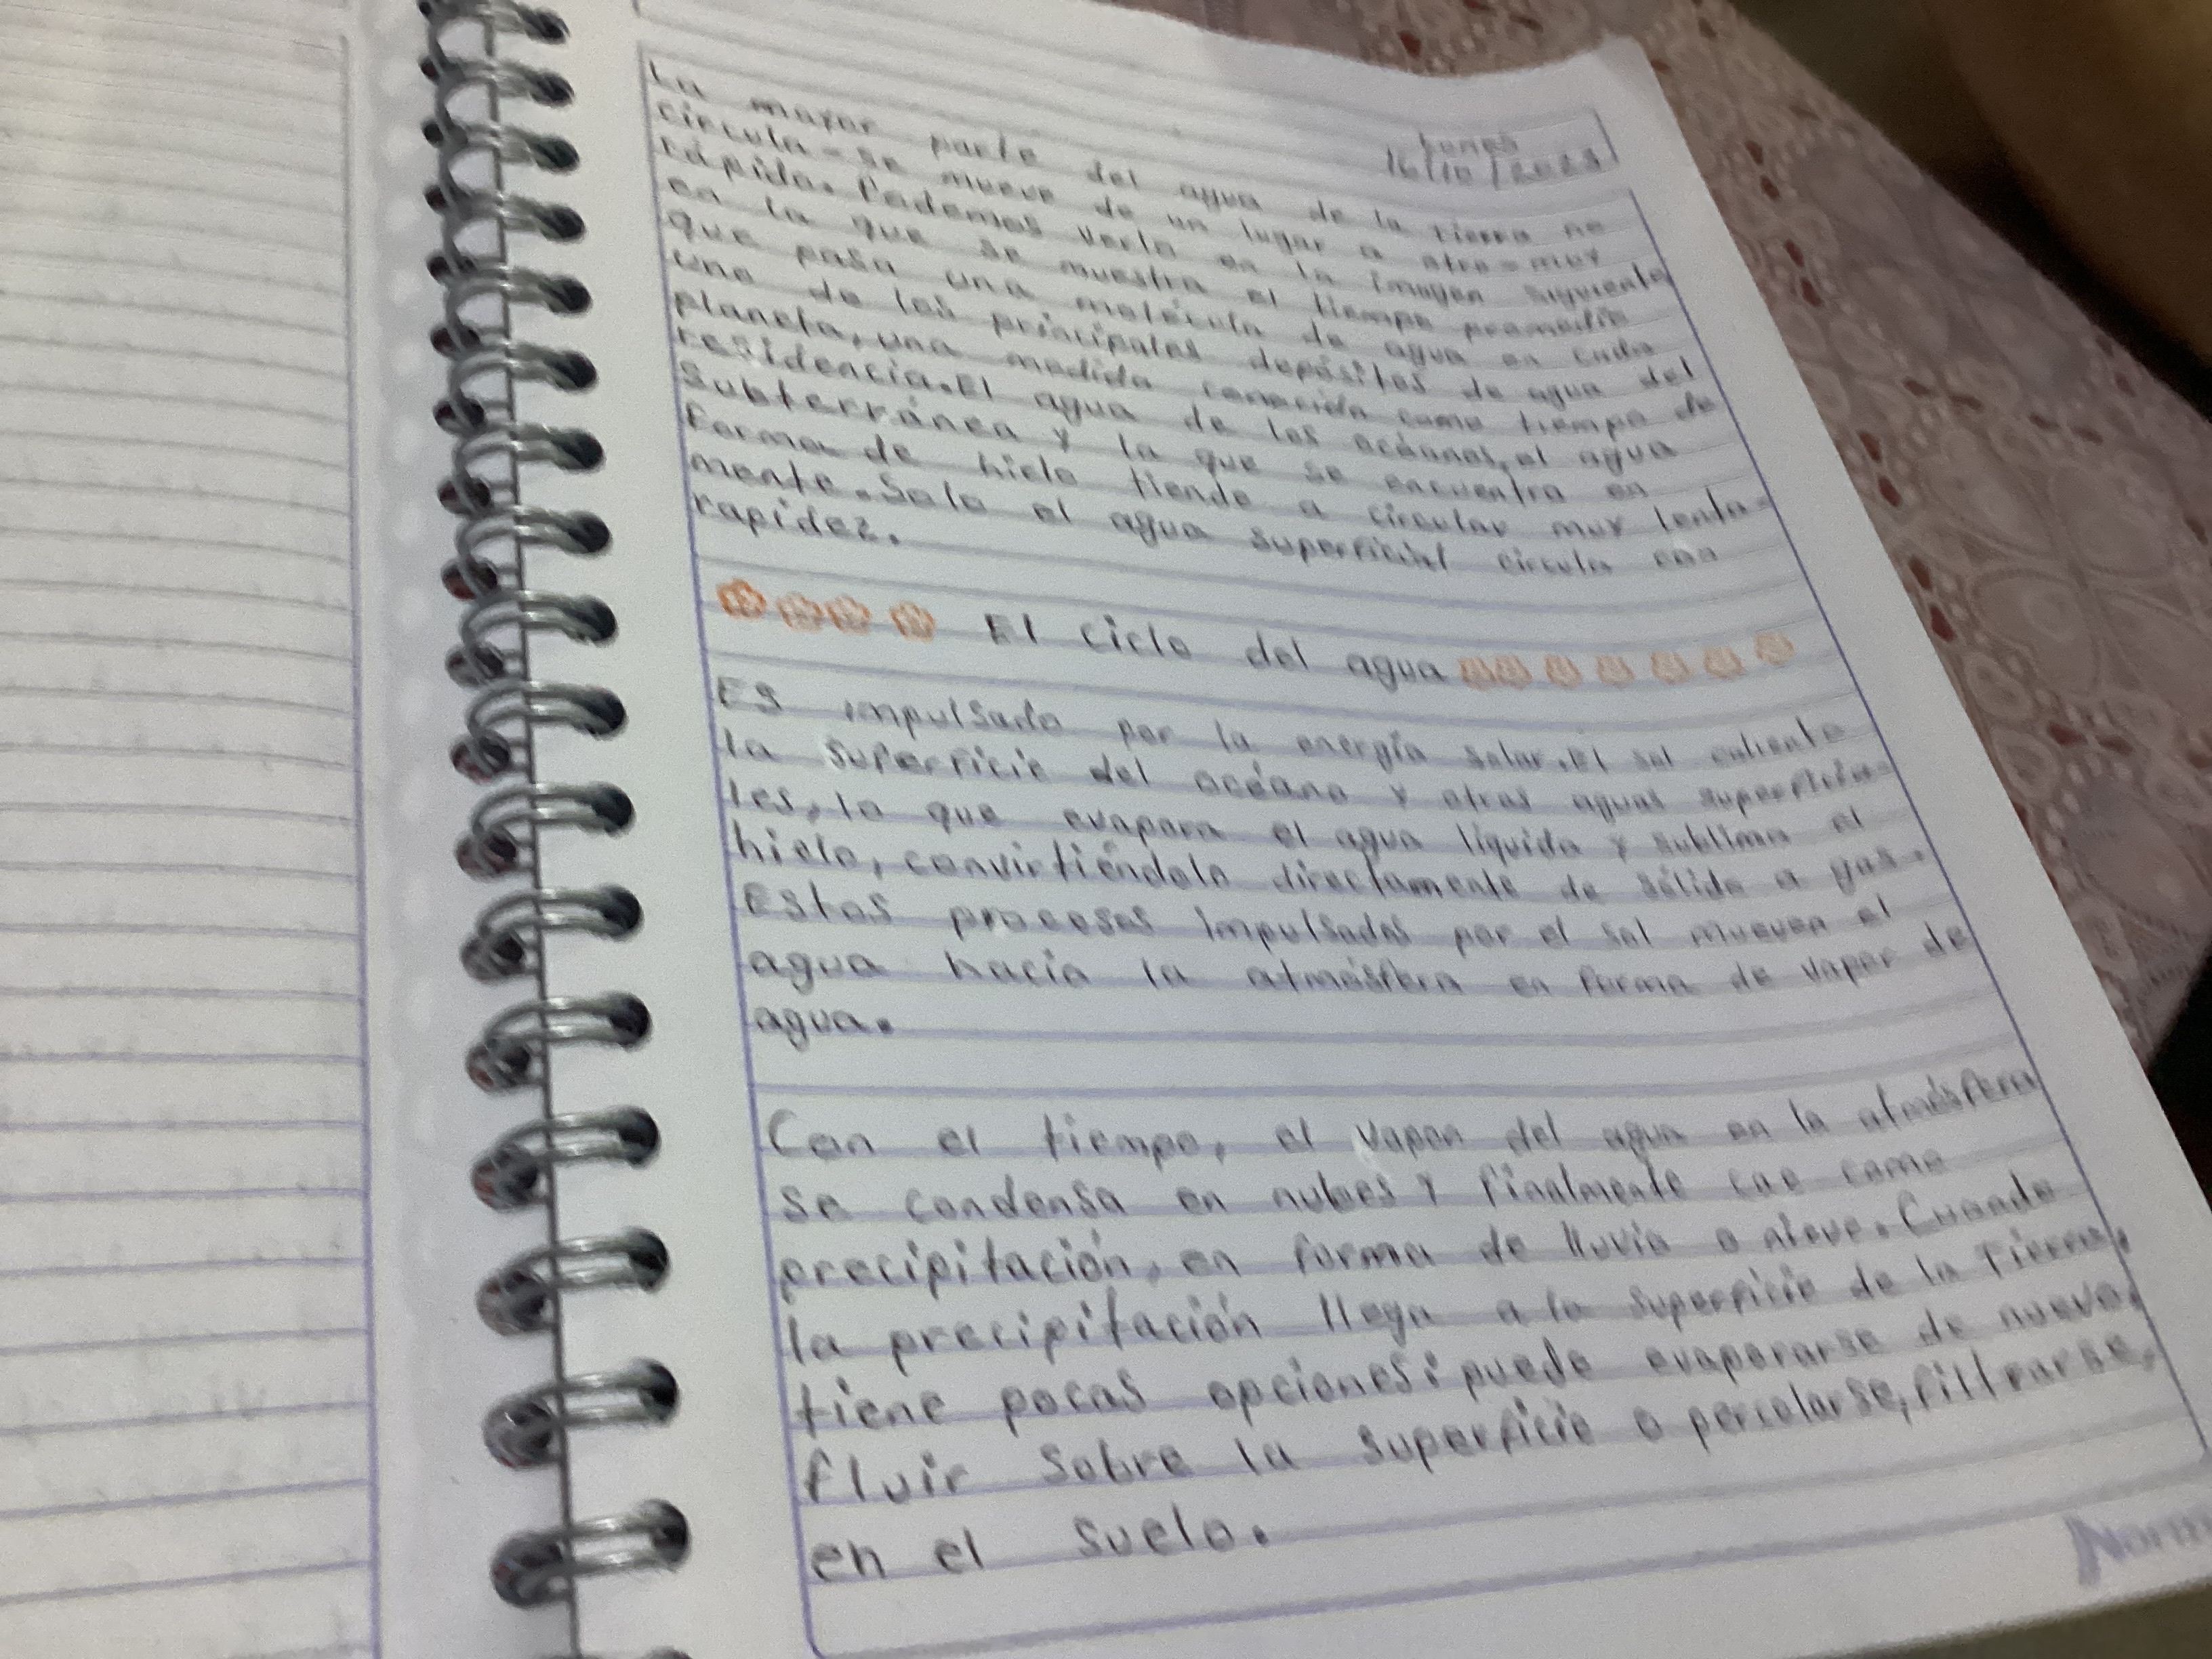 Lunes
16/10/2023
La mayor parte del agua de la tierra no
circula-se mueve de un lugar a otro-muy
rápido. Podemos verlo en la imagen siguiente
en la que se muestra el tiempo promedio
que pasa una molécula de agua en cada
uno de los principales depósitos de agua del
planeta, una medida conocida como tiempo de
residencia. El agua de los océanos, el agua
subterránea y la que se encuentra en
forma de hielo tiende a circular muy lenta-
mente. Solo el agua superficial circula con
rapidez.
El ciclo del agua
ES impulsado por la energía solar. El sol calienta
la superficie del océano y otras aguas superficia-
les, lo que evapora el agua líquida y sublima el
hielo, convirtiéndolo directamente de sólido a gas.
Estos procesos impulsados por el sol mueven el
agua hacia la atmósfera en forma de vapor de
agua.
Con el tiempo, el vapor del agua en la atmósfera
se condensa en nubes y finalmente cae como
precipitación, en forma de lluvia o nieve. Cuando
la precipitación llega a la superficie de la Tierra,
tiene pocas opciones: puede evaporarse de nuevo,
fluir sobre la superficie o percolarse, filtrarse,
en el suelo.